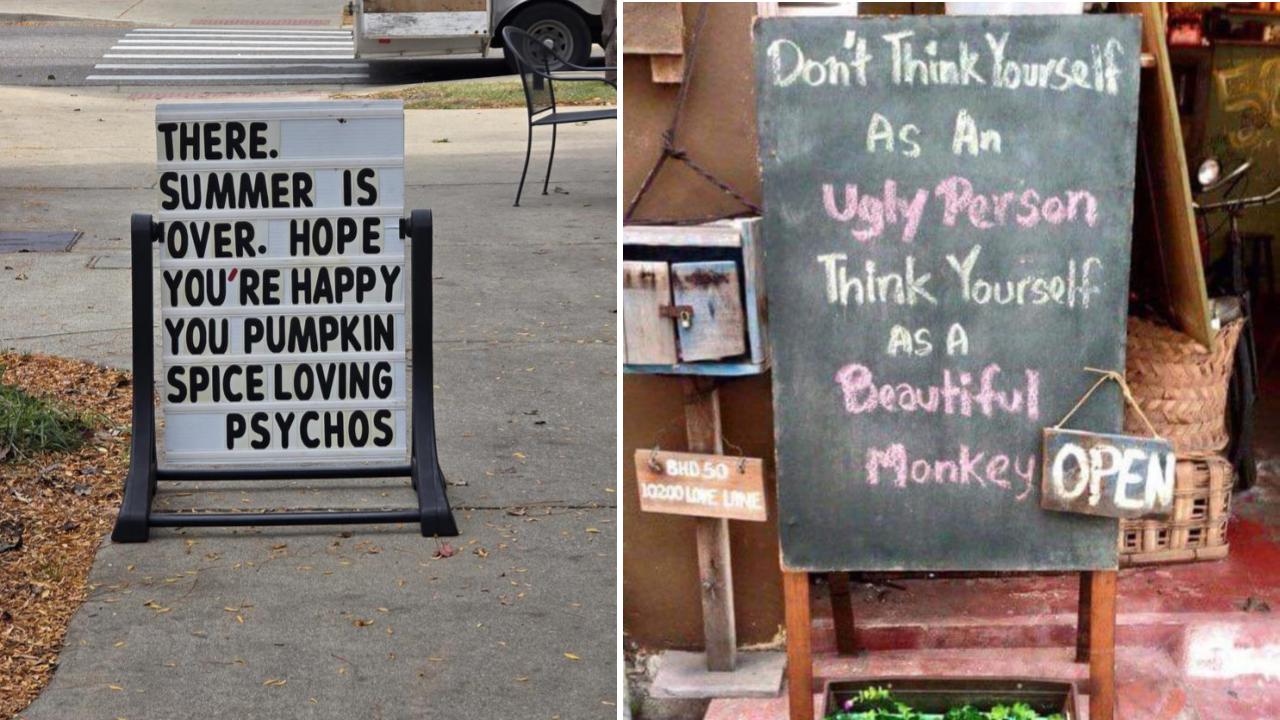 THERE.
SUMMER IS
OVER. HOPE
YOU'RE HAPPY
YOU PUMPKIN
SPICE LOVING
PSYCHOS
Don't Think Yourself
As An
Ugly Person
Think Yourself
As A
Beautiful
Monkey
OPEN
BHD 50
10200 LOVE LANE